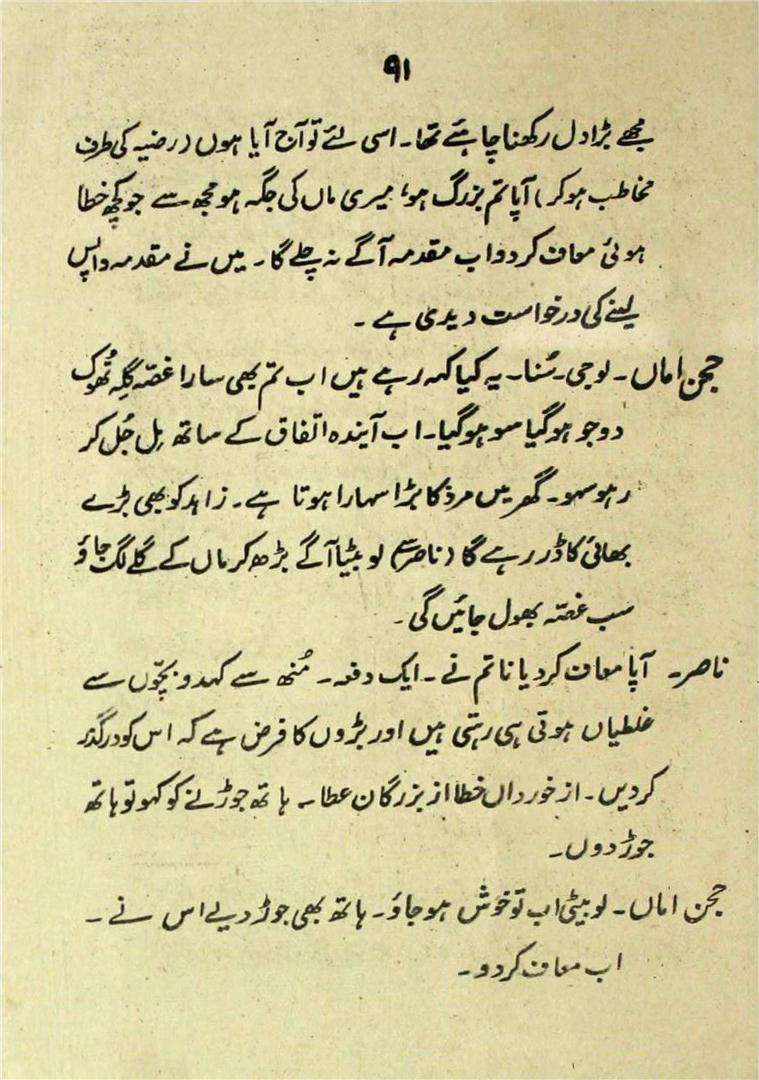 ۹۱
مجھے بڑا دل رکھنا چاہئے تھا۔ اسی لئے تو آج آیا ہوں (رضیہ کی طرف
مخاطب ہوکر) آپا تم بزرگ ہو، میری ماں کی جگہ ہو مجھ سے جو کچھ خطا
ہوئی معاف کردو اب مقدمہ آگے نہ چلے گا۔ میں نے مقدمہ واپس
لینے کی درخواست دیدی ہے ۔
حجن اماں ۔ لو جی ۔ سُنا ۔ یہ کیا کہہ رہے ہیں اب تم بھی سارا غصّہ گِلہ تُھوک
دو جو ہوگیا سو ہوگیا۔ اب آیندہ اتفاق کے ساتھ مِل جُل کر
رہو سہو۔ گھر میں مرد کا بڑا سہارا ہوتا ہے ۔ زاہد کو بھی بڑے
بھائی کا ڈر رہے گا (ناصر سے) لو بیٹیا آگے بڑھ کر ماں کے گلے لگ جاؤ
سب غصّہ بھول جائیں گی ۔
ناصر۔ آپا معاف کردیا نا تم نے ۔ ایک دفعہ ۔ مُنھ سے کہدو بچّوں سے
غلطیاں ہوتی ہی رہتی ہیں اور بڑوں کا فرض ہے کہ اس کو درگذر
کردیں ۔ از خورداں خطا از بزرگان عطا ۔ ہاتھ جوڑنے کو کہو تو ہاتھ
جوڑ دوں ۔
حجن اماں ۔ لو بیٹی اب تو خوش ہو جاؤ ۔ ہاتھ بھی جوڑ دیے اس نے ۔
اب معاف کردو ۔